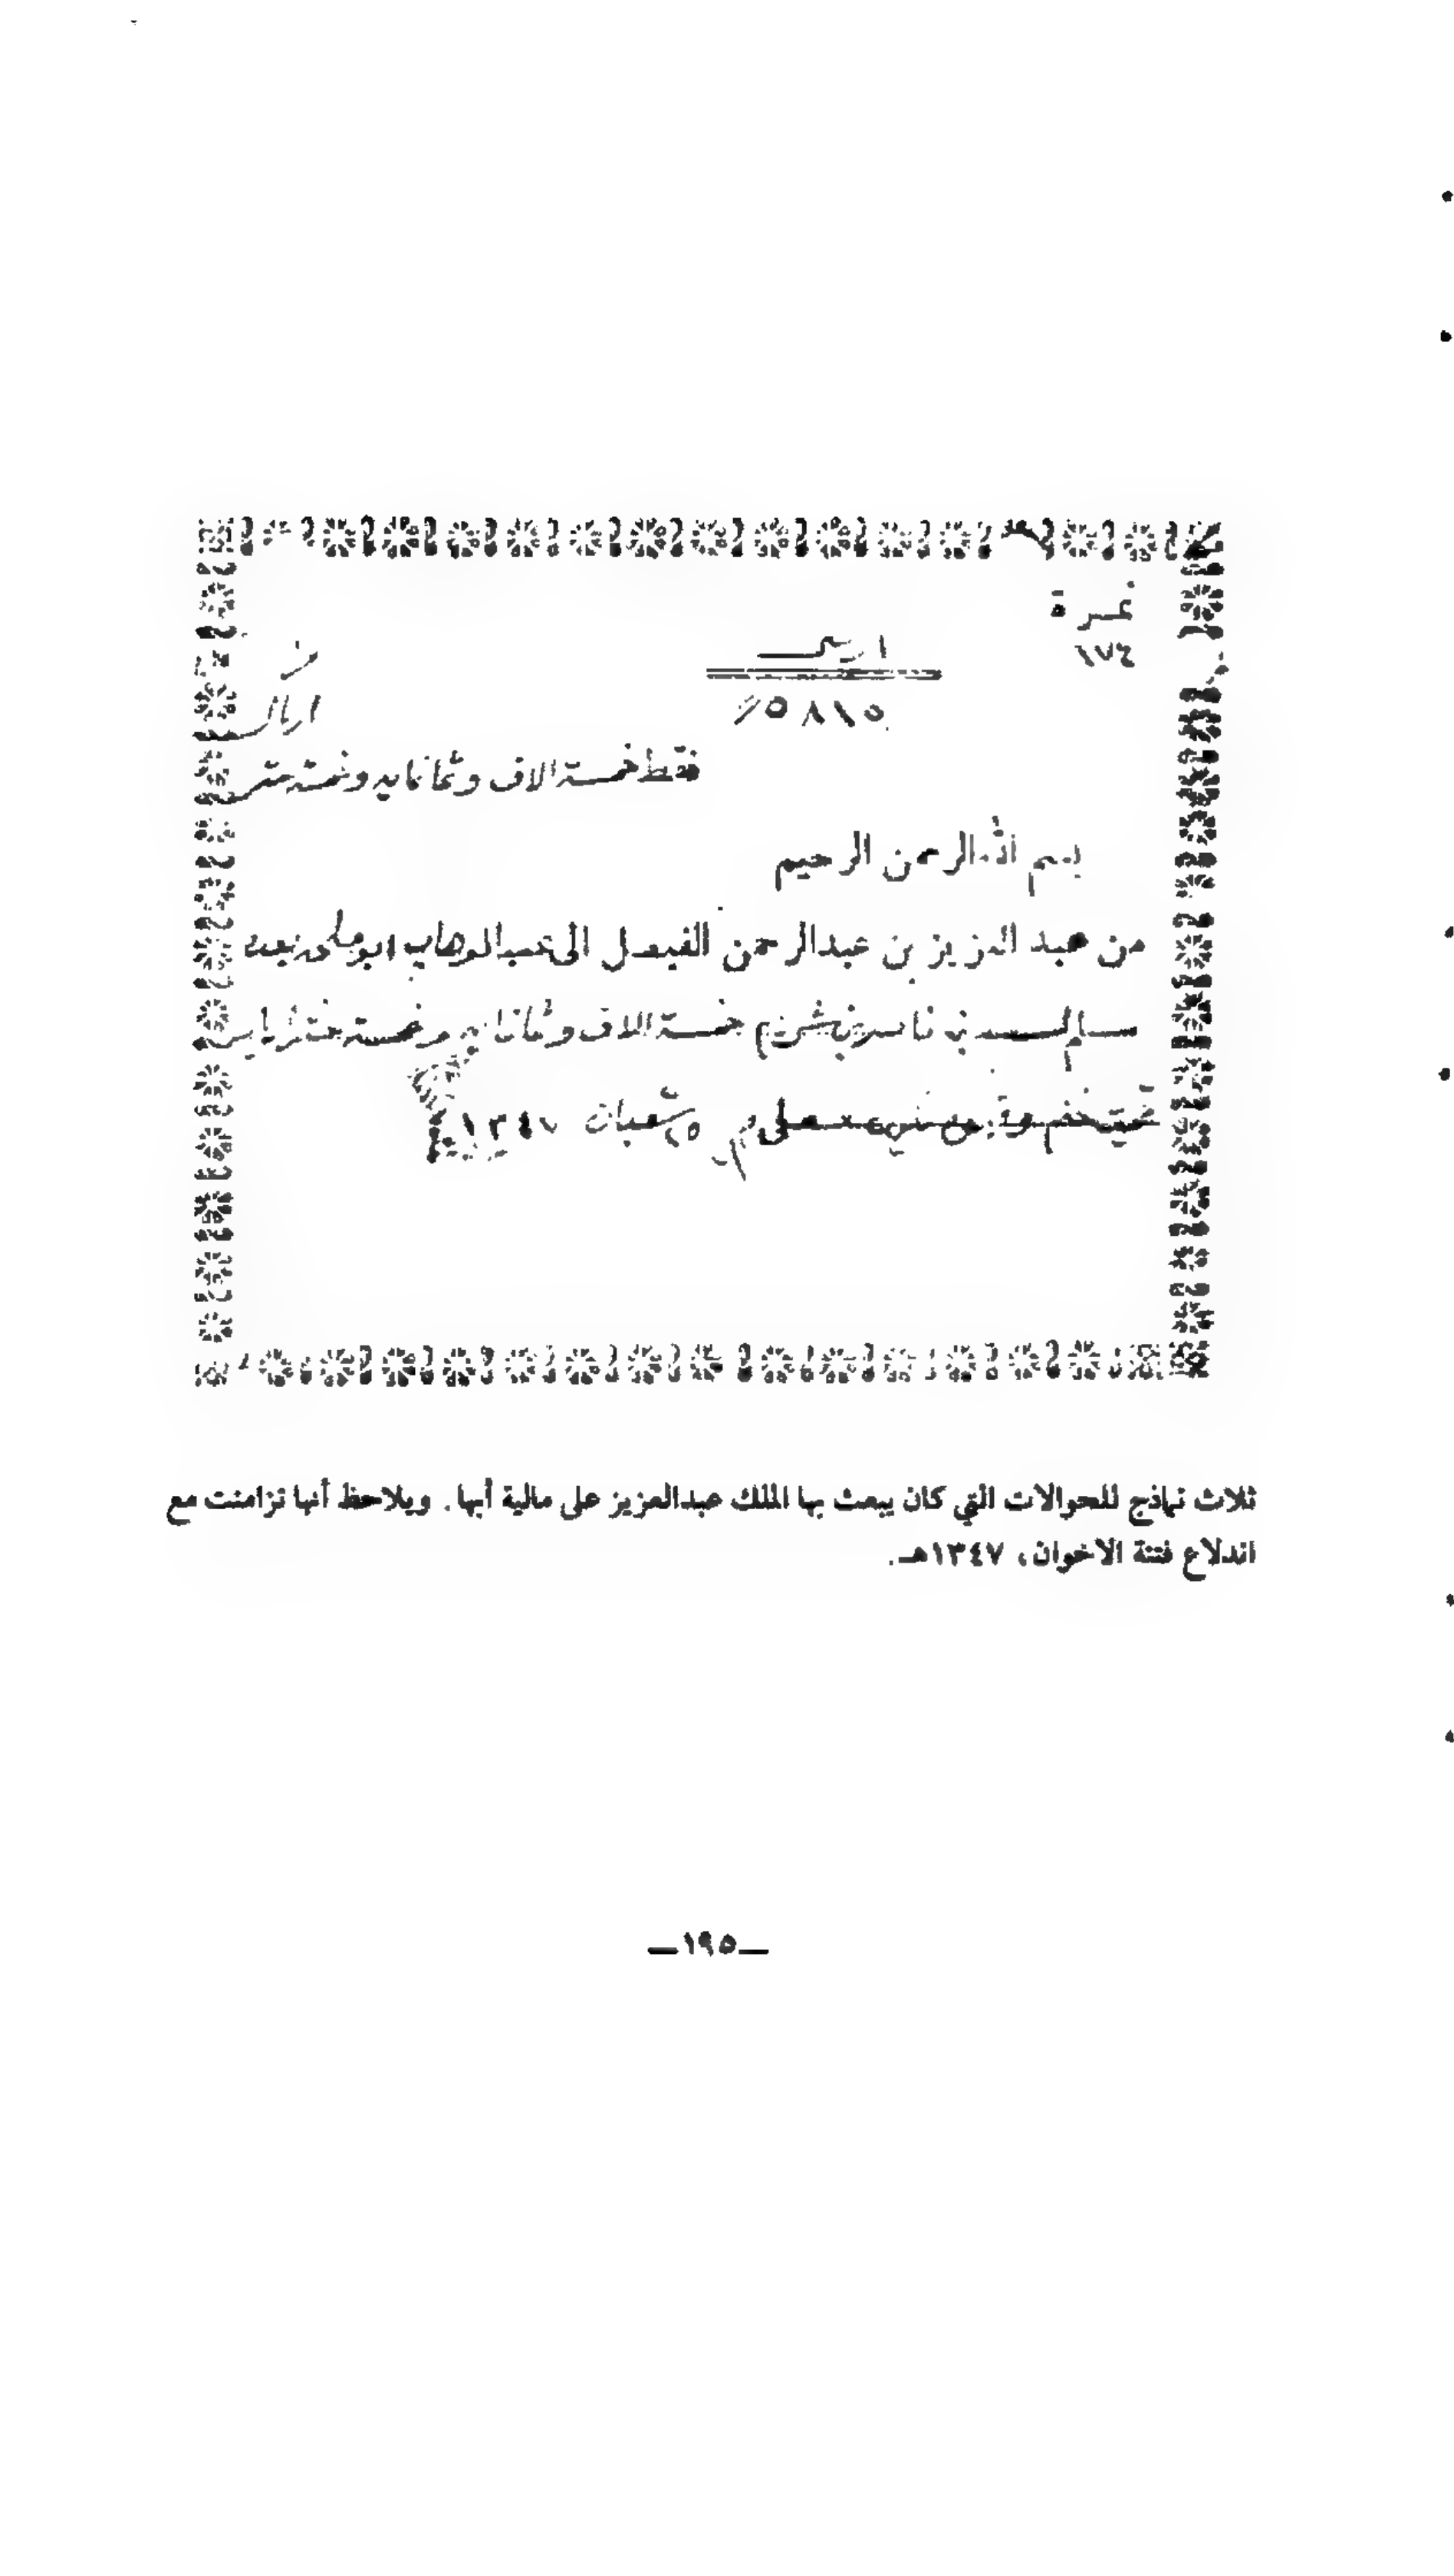 نمرة
١٧٤
٥٨١٥
اريال
فقط خمسة الاف وثمانمايه وخمسة عشر
بسم الله الرحمن الرحيم
من عبد العزيز بن عبدالرحمن الفيصل الى عبدالوهاب ابو ملحه بعده
سلم لسعد بن ناصر خمسة الاف وثمانمايه وخمسة عشر ريال
٢٥ شعبان ١٣٤٧
ثلاث نماذج للحوالات التي كان يبعث بها الملك عبدالعزيز على مالية أبها. ويلاحظ أنها تزامنت مع
اندلاع فتنة الاخوان، ١٣٤٧هـ.
—١٩٥—